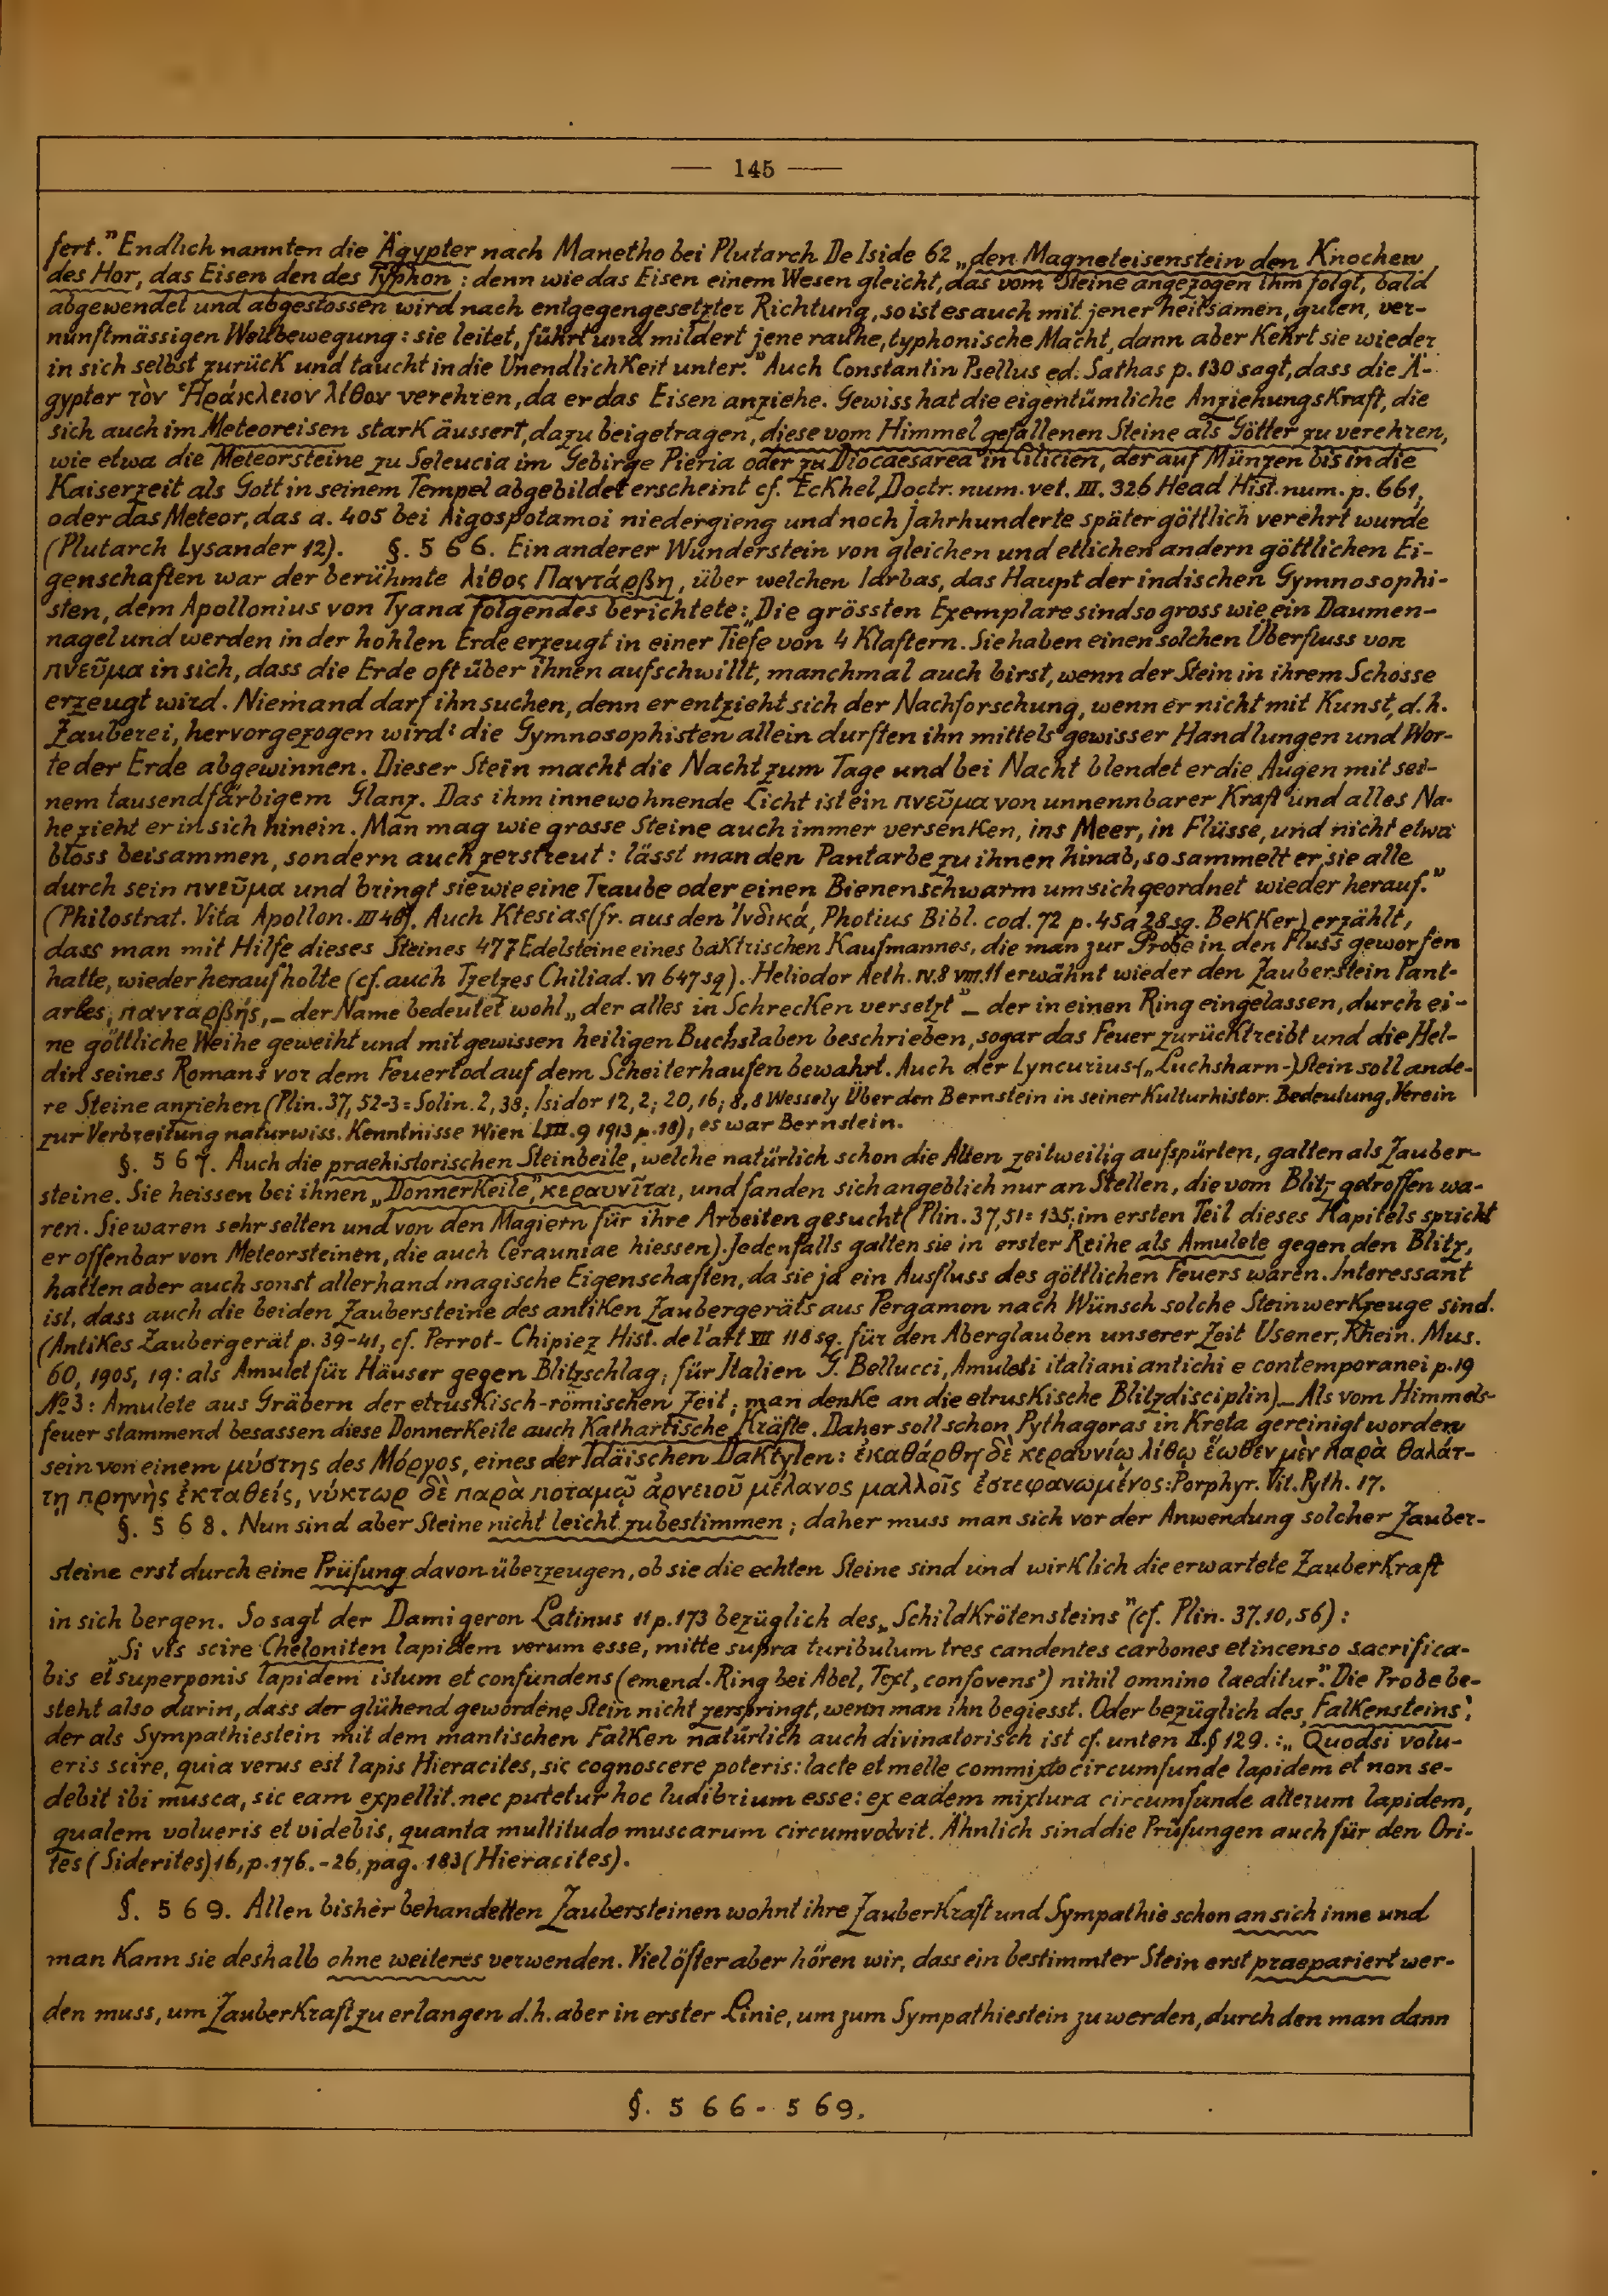 — 145 —
fert." Endlich nannten die Ägypter nach Manetho bei Plutarch De Iside 62 „den Magneteisenstein den Knochen
des Hor, das Eisen den des Typhon : denn wie das Eisen einem Wesen gleicht, das vom Steine angezogen ihm folgt, bald
abgewendet und abgestossen wird nach entgegengesetzter Richtung, so ist es auch mit jener heilsamen, guten, ver-
nunftmässigen Weltbewegung : sie leitet, führt und mildert jene rauhe, typhonische Macht, dann aber kehrt sie wieder
in sich selbst zurück und taucht in die Unendlichkeit unter." Auch Constantin Psellus ed. Sathas p. 130 sagt, dass die Ä-
gypter τὸν Ἡράκλειον λίθον verehren, da er das Eisen anziehe. Gewiss hat die eigentümliche Anziehungskraft, die
sich auch im Meteoreisen stark äussert, dazu beigetragen, diese vom Himmel gefallenen Steine als Götter zu verehren,
wie etwa die Meteorsteine zu Seleucia im Gebirge Pieria oder zu Diocaesarea in Cilicien, der auf Münzen bis in die
Kaiserzeit als Gott in seinem Tempel abgebildet erscheint cf. Eckhel, Doctr. num. vet. III. 326 Head Hist. num. p. 661,
oder das Meteor, das a. 405 bei Aigospotamoi niedergieng und noch Jahrhunderte später göttlich verehrt wurde
(Plutarch Lysander 12). §. 566. Ein anderer Wunderstein von gleichen und etlichen andern göttlichen Ei-
genschaften war der berühmte λίθος Παντάρβη, über welchen Iarbas, das Haupt der indischen Gymnosophi-
sten, dem Apollonius von Tyana folgendes berichtete: „Die grössten Exemplare sind so gross wie ein Daumen-
nagel und werden in der hohlen Erde erzeugt in einer Tiefe von 4 Klaftern. Sie haben einen solchen Überfluss von
πνεῦμα in sich, dass die Erde oft über ihnen aufschwillt, manchmal auch birst, wenn der Stein in ihrem Schosse
erzeugt wird. Niemand darf ihn suchen, denn er entzieht sich der Nachforschung, wenn er nicht mit Kunst, d.h.
Zauberei, hervorgezogen wird : die Gymnosophisten allein durften ihn mittels gewisser Handlungen und Wor-
te der Erde abgewinnen. Dieser Stein macht die Nacht zum Tage und bei Nacht blendet er die Augen mit sei-
nem tausendfärbigem Glanz. Das ihm innewohnende Licht ist ein πνεῦμα von unnennbarer Kraft und alles Na-
he zieht er in sich hinein. Man mag wie grosse Steine auch immer versenken, ins Meer, in Flüsse, und nicht etwa
bloss beisammen, sondern auch zerstreut : lässt man den Pantarbe zu ihnen hinab, so sammelt er sie alle
durch sein πνεῦμα und bringt sie wie eine Traube oder einen Bienenschwarm um sich geordnet wieder herauf."
(Philostrat. Vita Apollon. III 46). Auch Ktesias (fr. aus den Ἰνδικά, Photius Bibl. cod. 72 p. 45a 28 sq. Bekker) erzählt,
dass man mit Hilfe dieses Steines 477 Edelsteine eines baktrischen Kaufmannes, die man zur Probe in den Fluss geworfen
hatte, wieder heraufholte (cf. auch Tzetzes Chiliad. VI 647 sq). Heliodor Aeth. IV. 8 VIII. 11 erwähnt wieder den Zauberstein Pant-
arbes, πανταρβής, – der Name bedeutet wohl „der alles in Schrecken versetzt" – der in einen Ring eingelassen, durch ei-
ne göttliche Weihe geweiht und mit gewissen heiligen Buchstaben beschrieben, sogar das Feuer zurücktreibt und die Hel-
din seines Romans vor dem Feuertod auf dem Scheiterhaufen bewahrt. Auch der Lyncurius-(„Luchsharn-)Stein soll ande-
re Steine anziehen (Plin. 37, 52-3 = Solin. 2, 38; Isidor 12, 2; 20, 16; 8, 8 Wessely Über den Bernstein in seiner Kulturhistor. Bedeutung, Verein
zur Verbreitung naturwiss. Kenntnisse Wien LIII. 9 1913 p. 18); es war Bernstein.
§. 567. Auch die praehistorischen Steinbeile, welche natürlich schon die Alten zeitweilig aufspürten, galten als Zauber-
steine. Sie heissen bei ihnen „Donnerkeile", κεραυνῖται, und fanden sich angeblich nur an Stellen, die vom Blitz getroffen wa-
ren. Sie waren sehr selten und von den Magiern für ihre Arbeiten gesucht (Plin. 37, 51 = 135; im ersten Teil dieses Kapitels spricht
er offenbar von Meteorsteinen, die auch Cerauniae hiessen). Jedenfalls galten sie in erster Reihe als Amulete gegen den Blitz,
hatten aber auch sonst allerhand magische Eigenschaften, da sie ja ein Ausfluss des göttlichen Feuers waren. Interessant
ist, dass auch die beiden Zaubersteine des antiken Zaubergeräts aus Pergamon nach Wünsch solche Steinwerkzeuge sind.
(Antikes Zaubergerät p. 39-41, cf. Perrot-Chipiez Hist. de l'art VII 118 sq. für den Aberglauben unserer Zeit Usener, Rhein. Mus.
60, 1905, 19 : als Amulet für Häuser gegen Blitzschlag ; für Italien G. Bellucci, Amuleti italiani antichi e contemporanei p. 19
№ 3 : Amulete aus Gräbern der etruskisch-römischen Zeit ; man denke an die etruskische Blitzdisciplin) – Als vom Himmels-
feuer stammend besassen diese Donnerkeile auch Kathartische Kräfte. Daher soll schon Pythagoras in Kreta gereinigt worden
sein von einem μύστης des Μόργος, eines der Idäischen Daktylen : ἐκαθάρθη δὲ κεραυνίῳ λίθῳ ἕωθεν μὲν παρὰ θαλάτ-
τῃ πρηνὴς ἐκταθείς, νύκτωρ δὲ παρὰ ποταμῷ ἀρνειοῦ μέλανος μαλλοῖς ἐστεφανωμένος : Porphyr. Vit. Pyth. 17.
§. 568. Nun sind aber Steine nicht leicht zu bestimmen ; daher muss man sich vor der Anwendung solcher Zauber-
steine erst durch eine Prüfung davon überzeugen, ob sie die echten Steine sind und wirklich die erwartete Zauberkraft
in sich bergen. So sagt der Damigeron Latinus 11 p. 173 bezüglich des „Schildkrötensteins" (cf. Plin. 37. 10, 56) :
„Si vis scire Cheloniten lapidem verum esse, mitte supra turibulum tres candentes carbones et incenso sacrifica-
bis et superponis lapidem istum et confundens (emend. Ring bei Abel, Text „confovens') nihil omnino laeditur". Die Probe be-
steht also darin, dass der glühend gewordene Stein nicht zerspringt, wenn man ihn begiesst. Oder bezüglich des „Falkensteins',
der als Sympathiestein mit dem mantischen Falken natürlich auch divinatorisch ist cf. unten II. § 129. : „Quodsi volu-
eris scire, quia verus est lapis Hieracites, sic cognoscere poteris : lacte et melle commixto circumfunde lapidem et non se-
debit ibi musca, sic eam expellit. nec putetur hoc ludibrium esse : ex eadem mixtura circumfunde alterum lapidem,
qualem volueris et videbis, quanta multitudo muscarum circumvolvit. Ähnlich sind die Prüfungen auch für den Ori-
tes (Siderites) 16, p. 176. - 26, pag. 183 (Hieracites).
§. 569. Allen bisher behandelten Zaubersteinen wohnt ihre Zauberkraft und Sympathie schon an sich inne und
man kann sie deshalb ohne weiteres verwenden. Viel öfter aber hören wir, dass ein bestimmter Stein erst praepariert wer-
den muss, um Zauberkraft zu erlangen d.h. aber in erster Linie, um zum Sympathiestein zu werden, durch den man dann
§. 566 - 569.